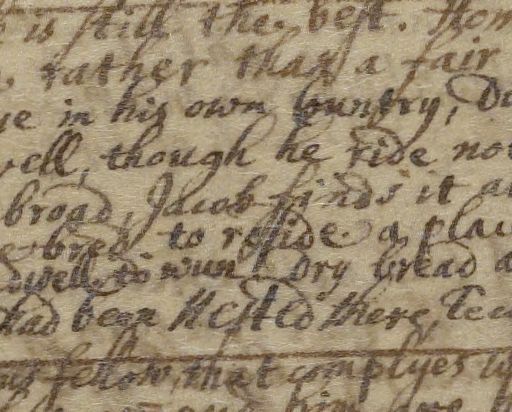 is still the best. Hom
rather than a fair
in his own Country, Do
well, though he ride not
broad, Jacob finds it a
bred to reside a plac
dwell to wun Dry bread a
had been Nested there,
fellow, that complyes w
him